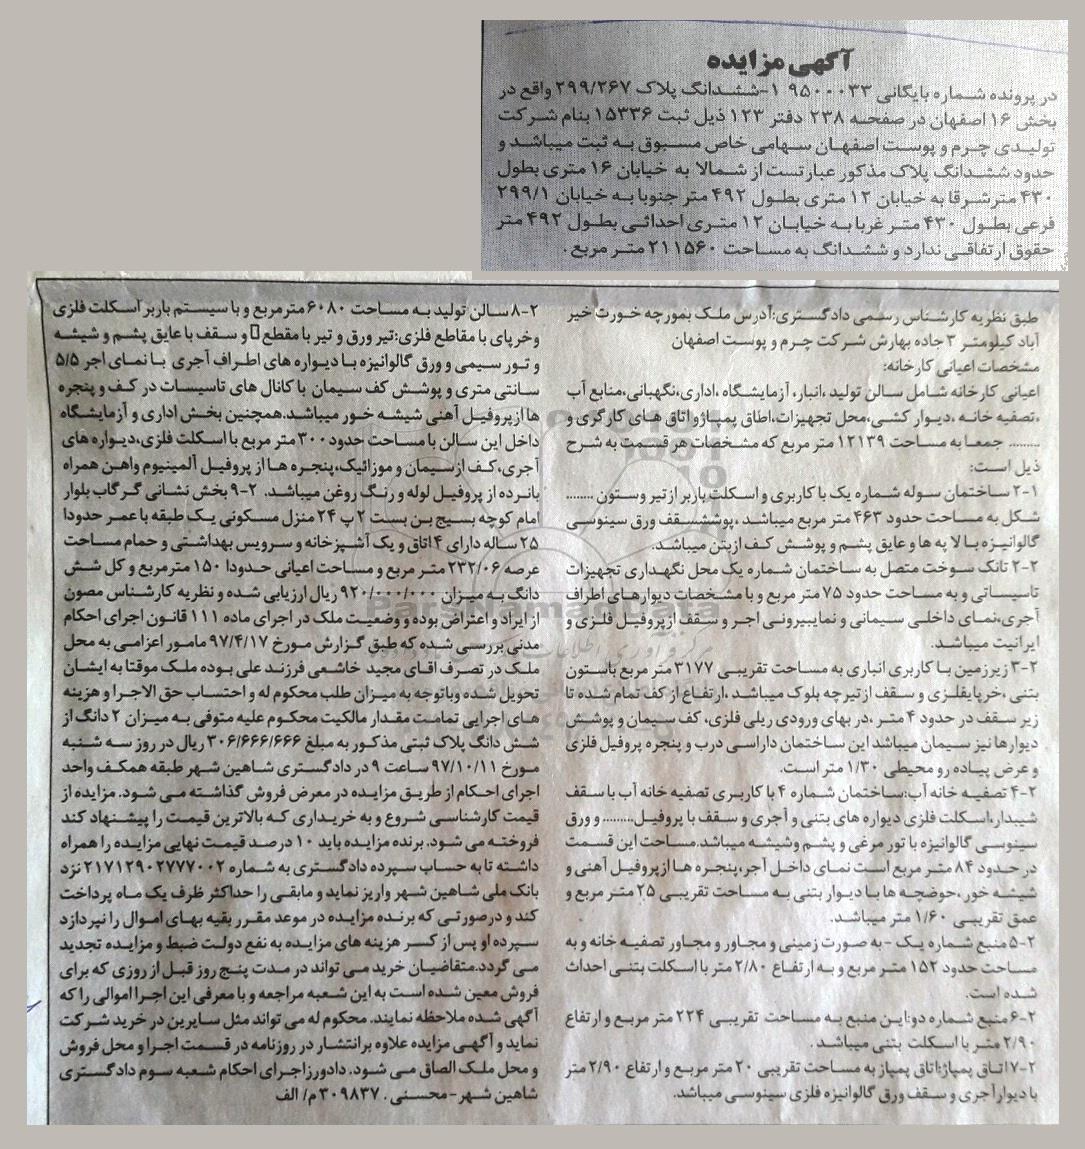 آگهی مزایده
در پرونده شماره بایگانی ۹۵۰۰۰۳۳ ۱-ششدانگ پلاک ۲۹۹/۲۶۷ واقع در
بخش ۱۶ اصفهان در صفحه ۲۳۸ دفتر ۱۲۳ ذیل ثبت ۱۵۳۳۶ بنام شرکت
تولیدی چرم و پوست اصفهان سهامی خاص مسبوق به ثبت میباشد و
حدود ششدانگ پلاک مذکور عبارتست از شمالا به خیابان ۱۶ متری بطول
۴۳۰ مترشرقا به خیابان ۱۲ متری بطول ۴۹۲ متر جنوبا به خیابان ۲۹۹/۱
فرعی بطول ۴۳۰ متر غربا به خیابان ۱۲ متری احداثی بطول ۴۹۲ متر
حقوق ارتفاقی ندارد و ششدانگ به مساحت ۲۱۱۵۶۰ متر مربع .
طبق نظریه کارشناس رسمی دادگستری:آدرس ملک بمورچه خورت خیر
آباد کیلومتر ۳ جاده بهارش شرکت چرم و پوست اصفهان
مشخصات اعیانی کارخانه:
اعیانی کارخانه شامل سالن تولید ،انبار، آزمایشگاه ،اداری،نگهبانی،منابع آب
،تصفیه خانه ، دیوار کشی،محل تجهیزات،اطاق پمپاژو اتاق های کارگری و
........ جمعا به مساحت ۱۲۱۳۹ متر مربع که مشخصات هر قسمت به شرح
ذیل است:
۲-۱ ساختمان سوله شماره یک با کاربری و اسکلت باربر از تیر وستون ........
شکل به مساحت حدود ۴۶۳ متر مربع میباشد ،پوششسقف ورق سینوسی
گالوانیزه با لا یه ها و عایق پشم و پوشش کف ازبتن میباشد.
۲-۲ تانک سوخت متصل به ساختمان شماره یک محل نگهداری تجهیزات
تاسیساتی و به مساحت حدود ۷۵ متر مربع و با مشخصات دیوارهای اطراف
آجری،نمای داخلی سیمانی و نمایبیرونی اجر و سقف ازپروفیل فلزی و
ایرانیت میباشد.
۲-۳ زیرزمین با کاربری انباری به مساحت تقریبی ۳۱۷۷ متر مربع باستون
بتنی ،خرپایفلزی و سقف از تیرچه بلوک میباشد ،ارتفاع از کف تمام شده تا
زیر سقف در حدود ۴ متر ،در بهای ورودی ریلی فلزی، کف سیمان و پوشش
دیوارها نیز سیمان میباشد این ساختمان داراسی درب و پنجره پروفیل فلزی
و عرض پیاده رو محیطی ۱/۳۰ متر است.
۲-۴ تصفیه خانه آب:ساختمان شماره ۴ با کاربری تصفیه خانه آب با سقف
شیبدار،اسکلت فلزی دیواره های بتنی و آجری و سقف با پروفیل........ و ورق
سینوسی گالوانیزه با تور مرغی و پشم وشیشه میباشد.مساحت این قسمت
در حدود ۸۴ متر مربع است نمای داخل آجر،پنجره ها ازپروفیل آهنی و
شیشه خور ،حوضچه ها با دیوار بتنی به مساحت تقریبی ۲۵ متر مربع و
عمق تقریبی ۱/۶۰ متر میباشد.
۲-۵ منبع شماره یک -به صورت زمینی و مجاور و مجاور تصفیه خانه و به
مساحت حدود ۱۵۲ متر مربع و به ارتفاع ۲/۸۰ متر با اسکلت بتنی احداث
شده است.
۲-۶منبع شماره دو:این منبع به مساحت تقریبی ۲۲۴ متر مربع و ارتفاع
۲/۹۰ متر با اسکلت بتنی میباشد .
۲-۷اتاق پمپاژ:اتاق پمپاز به مساحت تقریبی ۲۰ متر مربع و ارتفاع ۲/۹۰ متر
با دیوارآجری و سقف ورق گالوانیزه فلزی سینوسی میباشد.
۲-۸ سالن تولید به مساحت ۶۰۸۰ مترمربع و با سیستم باربر اسکلت فلزی
وخرپای با مقاطع فلزی:تیر ورق و تیر با مقطع و سقف با عایق پشم و شیشه
و تور سیمی و ورق گالوانیزه با دیواره های اطراف آجری با نمای اجر ۵/۵
سانتی متری و پوشش کف سیمان با کانال های تاسیسات در کف و پنجره
ها ازپروفیل آهنی شیشه خور میباشد.همچنین بخش اداری و آزمایشگاه
داخل این سالن با مساحت حدود ۳۰۰ متر مربع با اسکلت فلزی،دیواره های
آجری،کف ازسیمان و موزائیک،پنجره ها از پروفیل آلمینیوم واهن همراه
بانرده از پروفیل لوله و رنگ روغن میباشد. ۲-۹ بخش نشانی گرگاب بلوار
امام کوچه بسیج بن بست ۲ پ ۲۴ منزل مسکونی یک طبقه با عمر حدودا
۲۵ ساله دارای ۴ اتاق و یک آشپزخانه و سرویس بهداشتی و حمام مساحت
عرصه ۲۳۲/۰۶ متر مربع و مساحت اعیانی حدودا ۱۵۰ مترمربع و کل شش
دانگ به میزان ۹۲۰/۰۰۰/۰۰۰ ریال ارزیابی شده و نظریه کارشناس مصون
از ایراد و اعتراض بوده و وضعیت ملک در اجرای ماده ۱۱۱ قانون اجرای احکام
مدنی بررسی شده که طبق گزارش مورخ ۹۷/۴/۱۷ مامور اعزامی به محل
ملک در تصرف اقای مجید خاشعی فرزند علی بوده ملک موقتا به ایشان
تحویل شده وباتوجه به میزان طلب محکوم له و احتساب حق الاجرا و هزینه
های اجرایی تمامت مقدار مالکیت محکوم علیه متوفی به میزان ۲ دانگ از
شش دانگ پلاک ثبتی مذکور به مبلغ ۳۰۶/۶۶۶/۶۶۶ ریال در روز سه شنبه
مورخ ۹۷/۱۰/۱۱ ساعت ۹ در دادگستری شاهین شهر طبقه همکف واحد
اجرای احکام از طریق مزایده در معرض فروش گذاشته می شود. مزایده از
قیمت کارشناسی شروع و به خریداری که بالاترین قیمت را پیشنهاد کند
فروخته می شود. برنده مزایده باید ۱۰ درصد قیمت نهایی مزایده را همراه
داشته تا به حساب سپرده دادگستری به شماره ۲۱۷۱۲۹۰۲۷۷۷۰۰۲ نزد
بانک ملی شاهین شهر واریز نماید و مابقی را حداکثر ظرف یک ماه پرداخت
کند و درصورتی که برنده مزایده در موعد مقرر بقیه بهای اموال را نپردازد
سپرده او پس از کسر هزینه های مزایده به نفع دولت ضبط و مزایده تجدید
می گردد.متقاضیان خرید می تواند در مدت پنج روز قبل از روزی که برای
فروش معین شده است به این شعبه مراجعه و با معرفی این اجرا اموالی را که
آگهی شده ملاحظه نمایند. محکوم له می تواند مثل سایرین در خرید شرکت
نماید و آگهی مزایده علاوه برانتشار در روزنامه در قسمت اجرا و محل فروش
و محل ملک الصاق می شود. دادورزاجرای احکام شعبه سوم دادگستری
شاهین شهر-محسنی . ۳۰۹۸۳۷ م/ الف
ParsNamadData